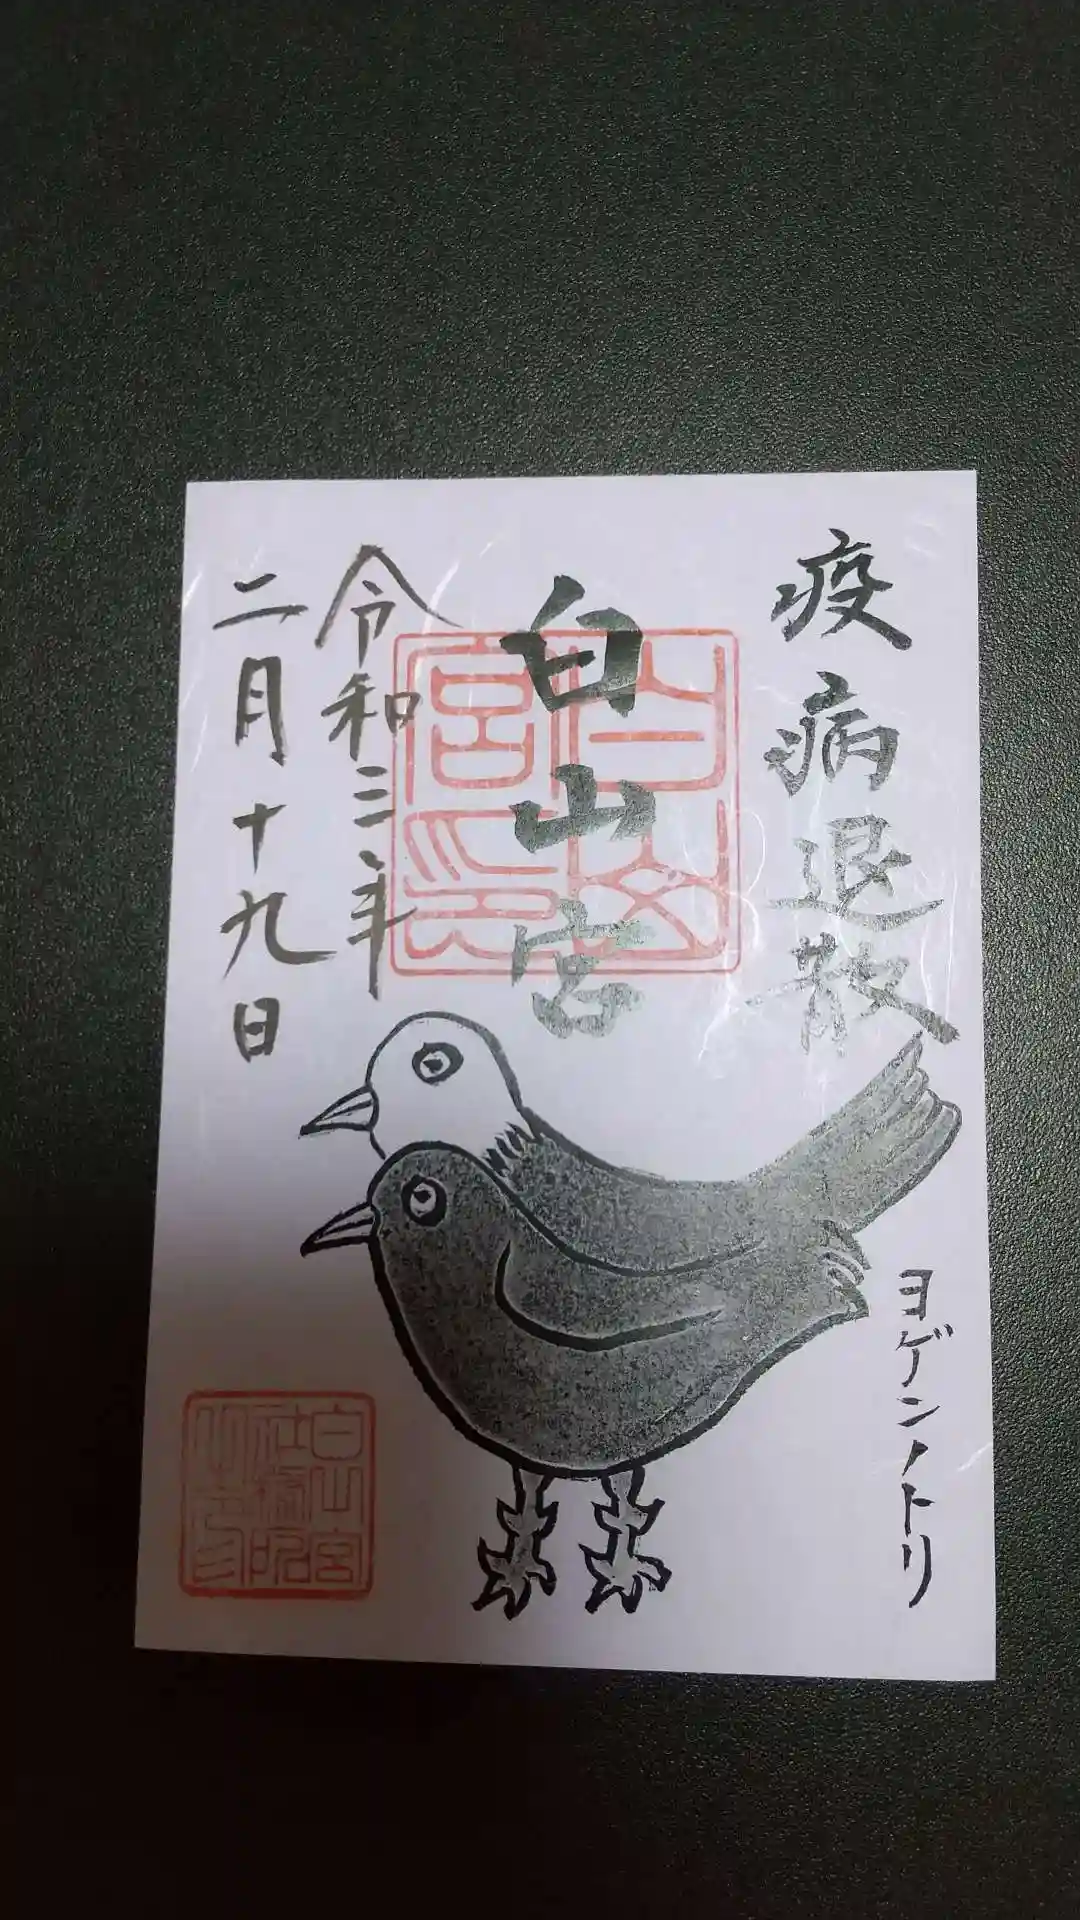 疫病退散
白山宮
白山宮印
令和三年
二月十九日
ヨゲンノトリ
白山宮